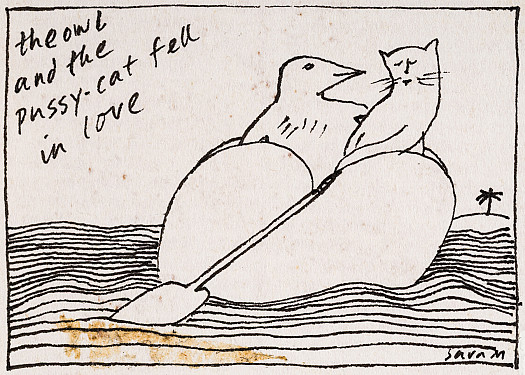 the owl
and the
pussy-cat fell
in love
Sara M